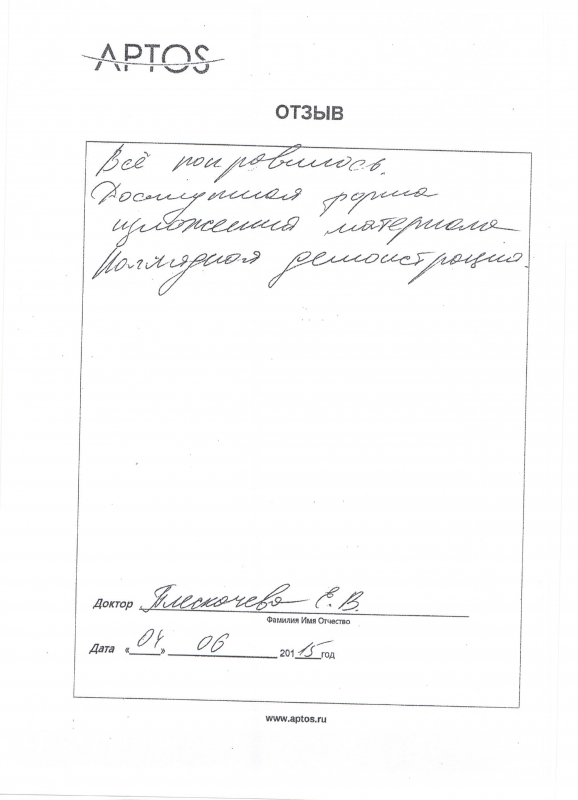 APTOS
ОТЗЫВ
Всё понравилось.
Доступная форма
изложения материала
Наглядная демонстрация.
Доктор Плескачева Е. В.
Фамилия Имя Отчество
Дата «04» 06 2015 год
www.aptos.ru